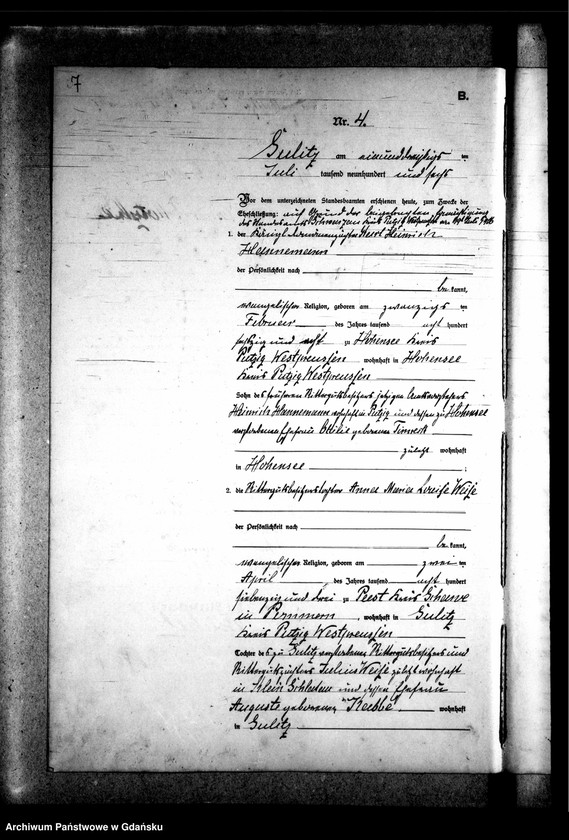 7
B.
Nr. 4.
Gulitz am einunddreißigs ten
Juli tausend neunhundert und sechs
Vor dem unterzeichneten Standesbeamten erschienen heute, zum Zwecke der
Eheschließung: auf Grund der
des Standesamts
1. der Heinrich
Hannemann
der Persönlichkeit nach
be kannt,
evangelischer Religion, geboren am zwanzigs ten
Februar des Jahres tausend acht hundert
sechzig und acht zu Hohensee Kreis
Putzig Westpreussen wohnhaft in Hohensee
Kreis Putzig Westpreussen
Sohn des früheren Rittergutsbesitzers
Heinrich Hannemann wohnhaft in Putzig und dessen zu Hohensee
verstorbenen Ehefrau Ottilie geborenen
zuletzt wohnhaft
in Hohensee ;
2. die Rittergutsbesitzerstochter Anna Maria Louise Weiße
der Persönlichkeit nach
be kannt,
evangelischer Religion, geboren am zwei ten
April , des Jahres tausend acht hundert
siebenzig und drei zu Peest Kreis Schlawe
in Pommern , wohnhaft in Gulitz
Kreis Putzig Westpreussen
Tochter des zu Gulitz verstorbenen Rittergutsbesitzers und
Julius Weiße zuletzt wohnhaft
in Klein und dessen Ehefrau
Auguste geborenen wohnhaft
in Gulitz
Archiwum Państwowe w Gdańsku